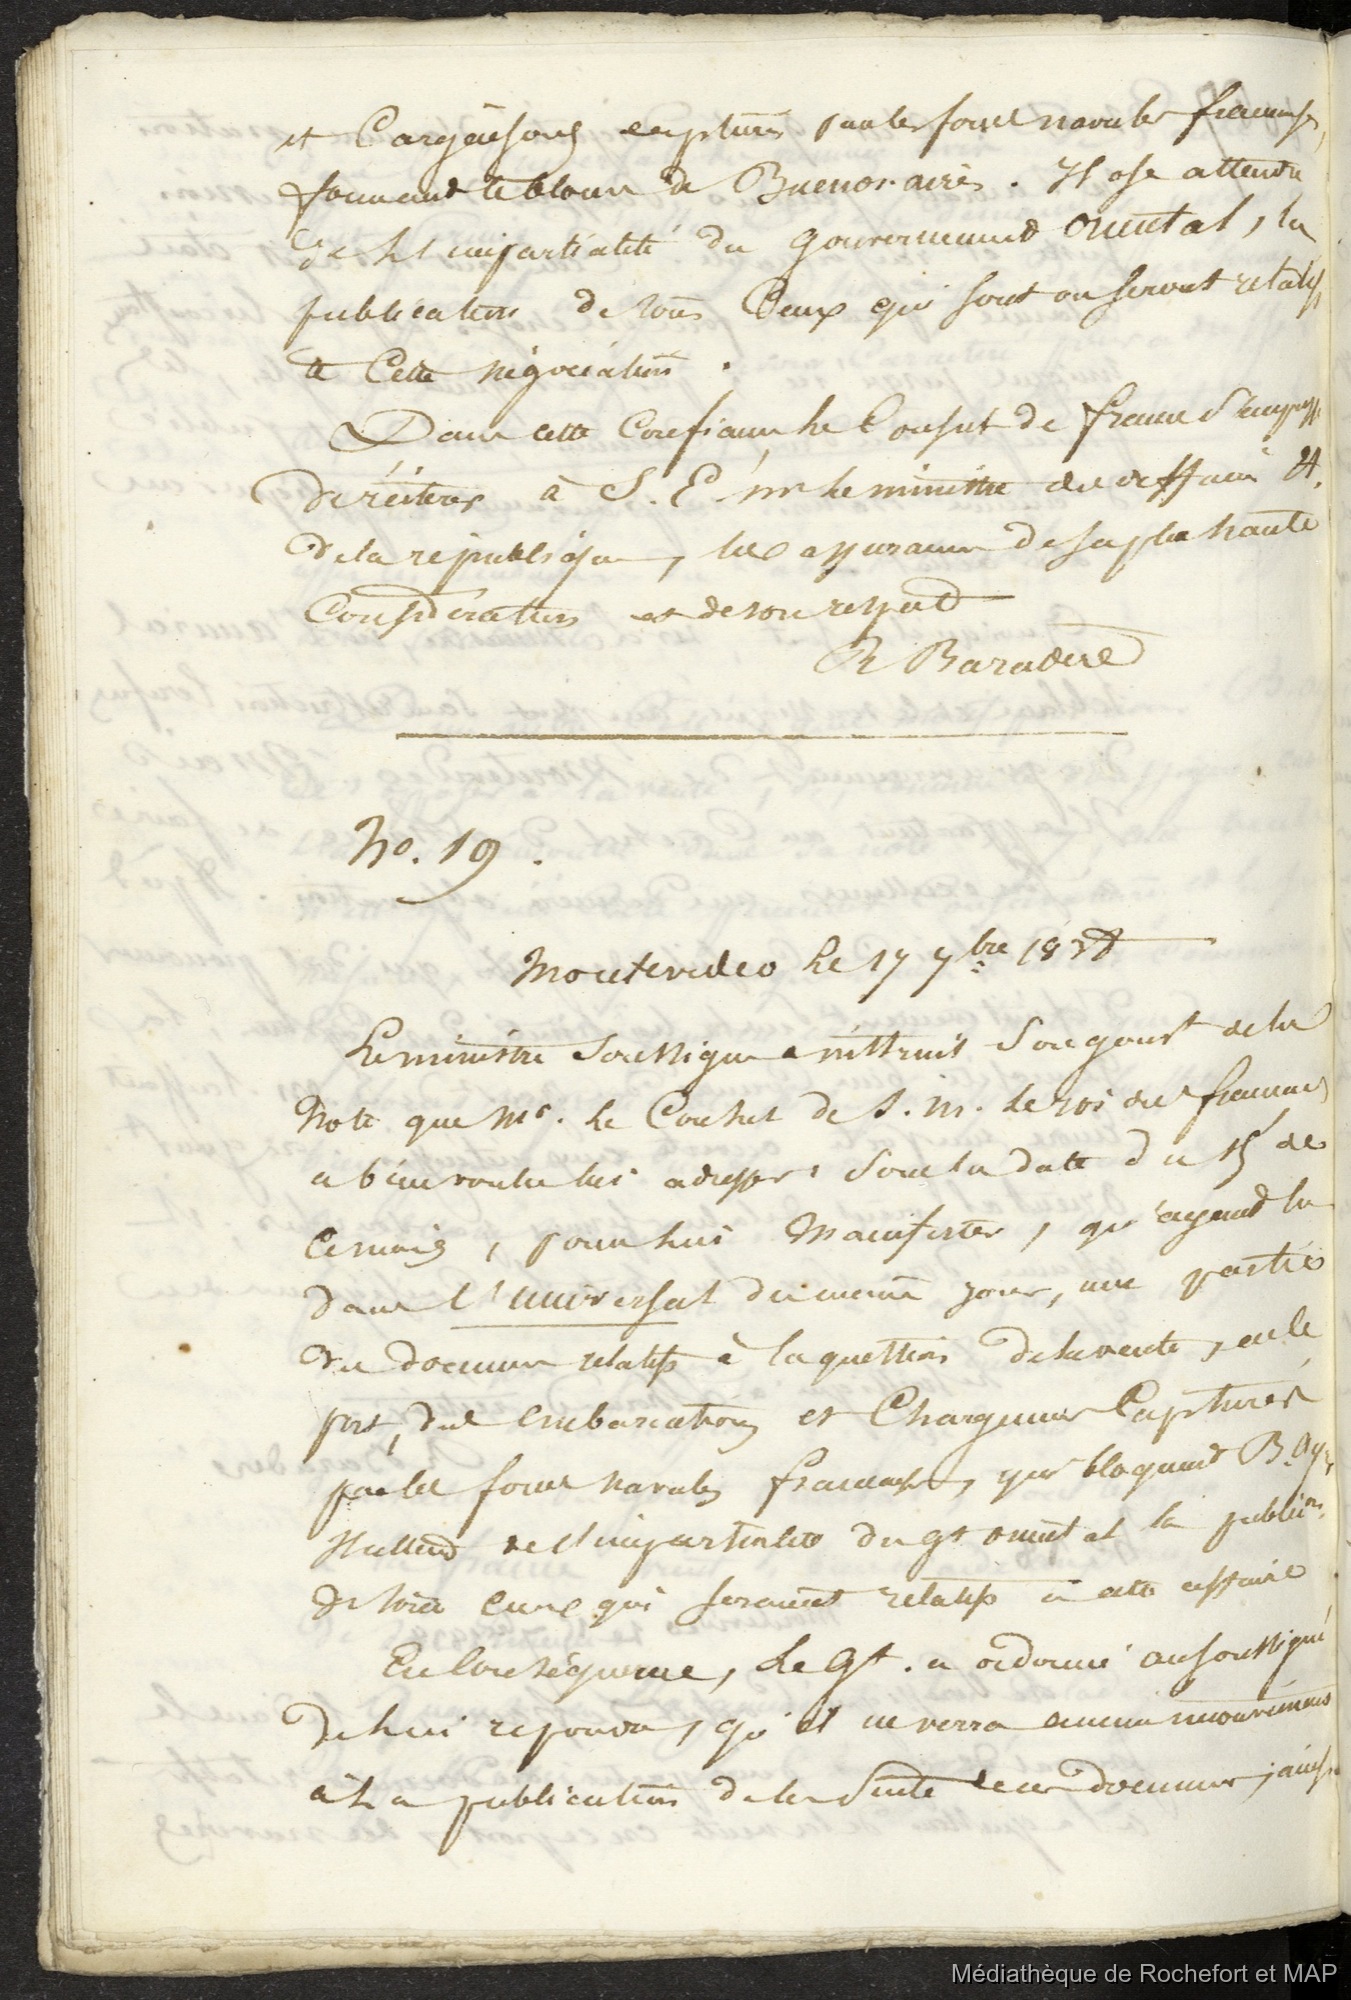 et Cargaisons capturés par les forces navales françaises,
formant le blocus de Buenos-aires. Il ose attendre
de l'impartialité du gouvernement Oriental, la
publication de tous Ceux qui sont ou seront relatifs
à Cette négociation.
Dans cette Confiance, le Consul de france s'empresse
de réiterer à S. E. mr le ministre des affaires
de la république, les assurances de sa plus haute
Considération et de son respect
R Baradère
No. 19.
Montevideo le 17 7bre 1838
Le ministre Soussigné a instruit Son gouvt de la
Note que Mr. le Consul de S. M. le roi des français
a bien voulu lui adresser sous la date du 15 de
Ce mois, pour lui Manifester, qu'ayant lu
dans l'universal du même jour, une partie
des documens relatifs à la question de la vente, en le
port, des embarcations et Chargemens Capturés
par les forces navales françaises, qui bloquent B. Ayres,
Il attend de l'impartialité du gt oriental la publion
de tous ceux qui seraient relatifs à cette affaire.
En Conséquence, le Gt. a ordonné au soussigné
de lui répondre, qu'il ne verra aucun inconvénient
à la publication de la Suite de ces documens, ainsi